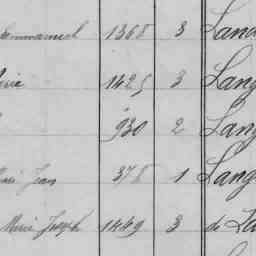 Emmanuel 1368 3 Land
Marie 1425 3 Lang
930 2 Lang
Jean 378 1 Lang
Marie Joseph 1449 3 de La